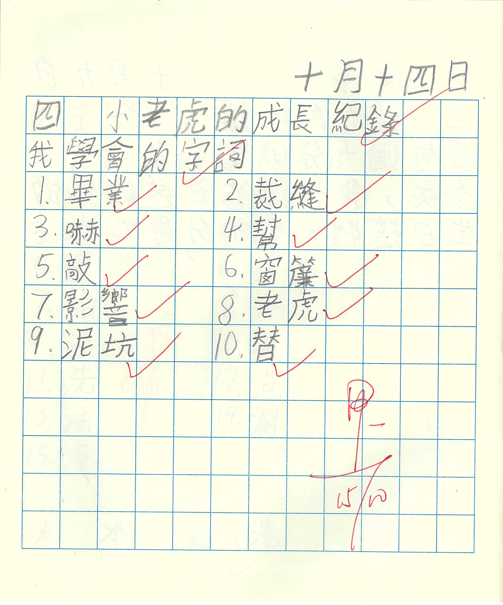 十月十四日
四 小老虎的成長紀錄
我學會的字詞
1. 畢業 2. 裁縫
3. 嚇 4. 幫
5. 敲 6. 窗簾
7. 影響 8. 老虎
9. 泥坑 10. 替
甲-
15/10